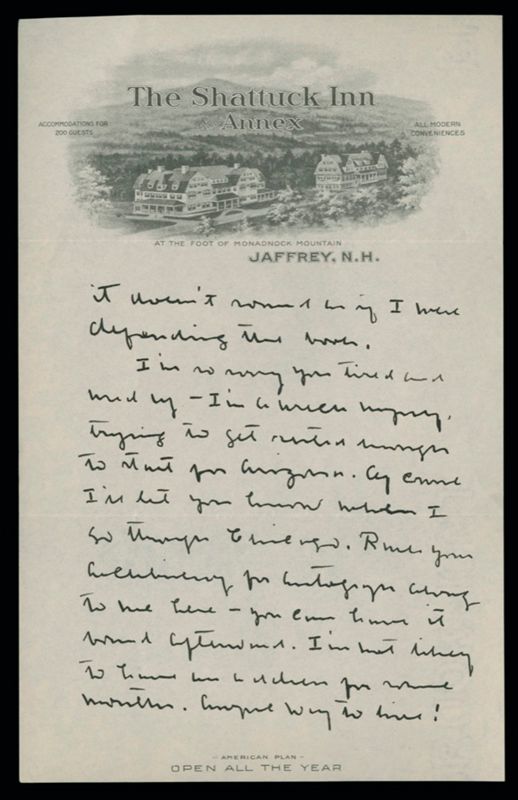 The Shattuck Inn
& Annex
ACCOMMODATIONS FOR
200 GUESTS
ALL MODERN
CONVENIENCES
AT THE FOOT OF MONADNOCK MOUNTAIN
JAFFREY, N.H.
it doesn't sound as if I were
defending the book.
I'm so sorry you tired and
used up – I'm a wreck myself,
trying to get rested enough
to start for Arizona. Of course
I'll let you know when I
go through Chicago. Rush your
for autograph along
to me here – you can have it
bound afterward. I'm not likely
to have an address for some
months. Awful way to live!
– AMERICAN PLAN –
OPEN ALL THE YEAR